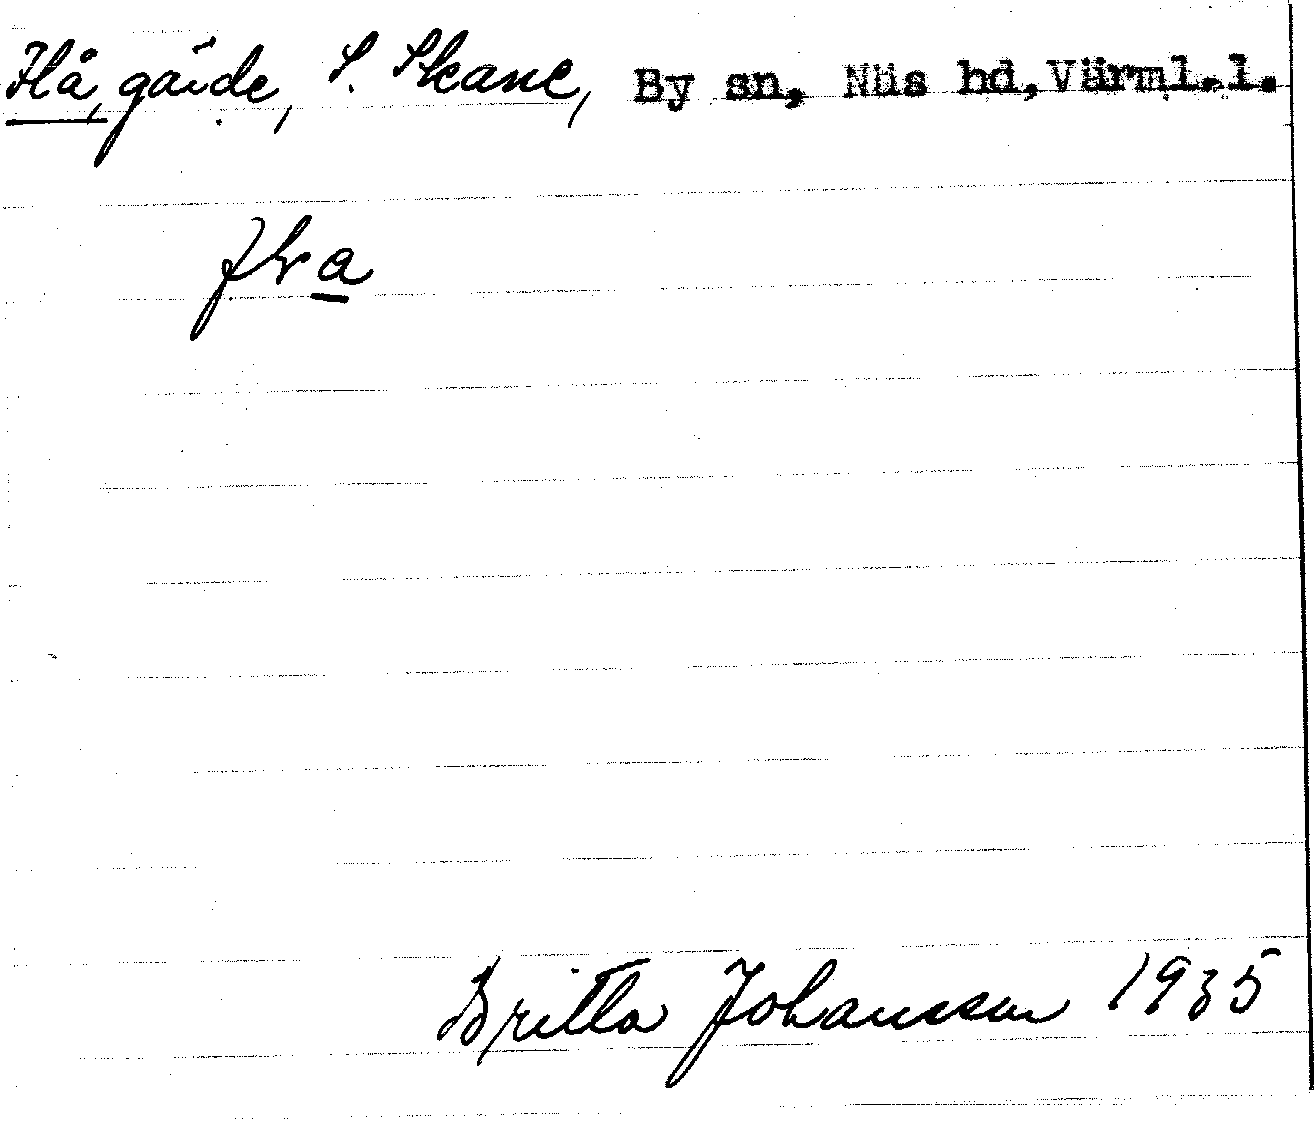 Flå, gärde, S. Skane, By sn, Näs hd, Värml.l.
flva
Britta Johansson 1935